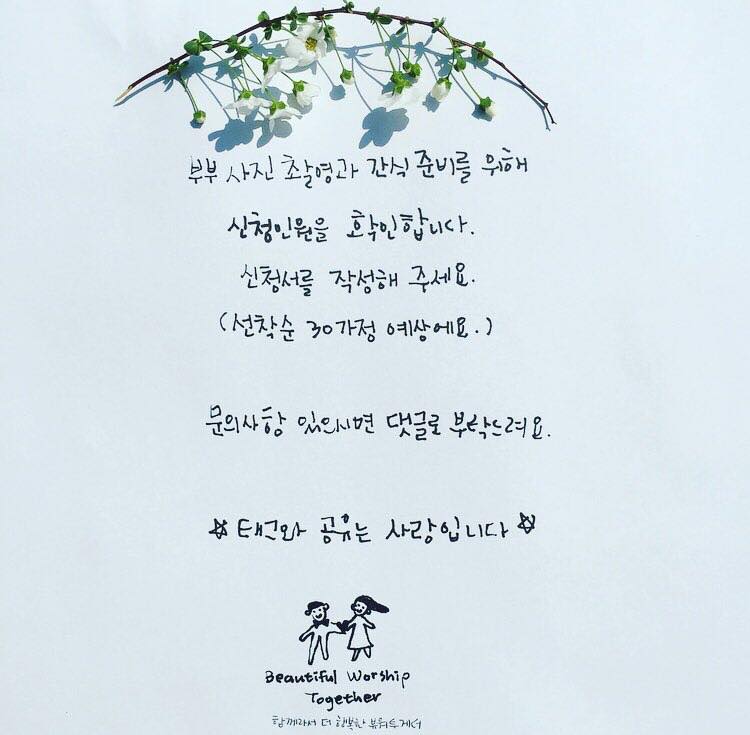 부부 사진 촬영과 간식 준비를 위해
신청인원을 확인합니다.
신청서를 작성해 주세요.
(선착순 30가정 예상해요.)
문의사항 있으시면 댓글로 부탁드려요.
☆ 태그와 공유는 사랑입니다 ☆
Beautiful Worship
Together
함께라서 더 행복한 뷰워투게더